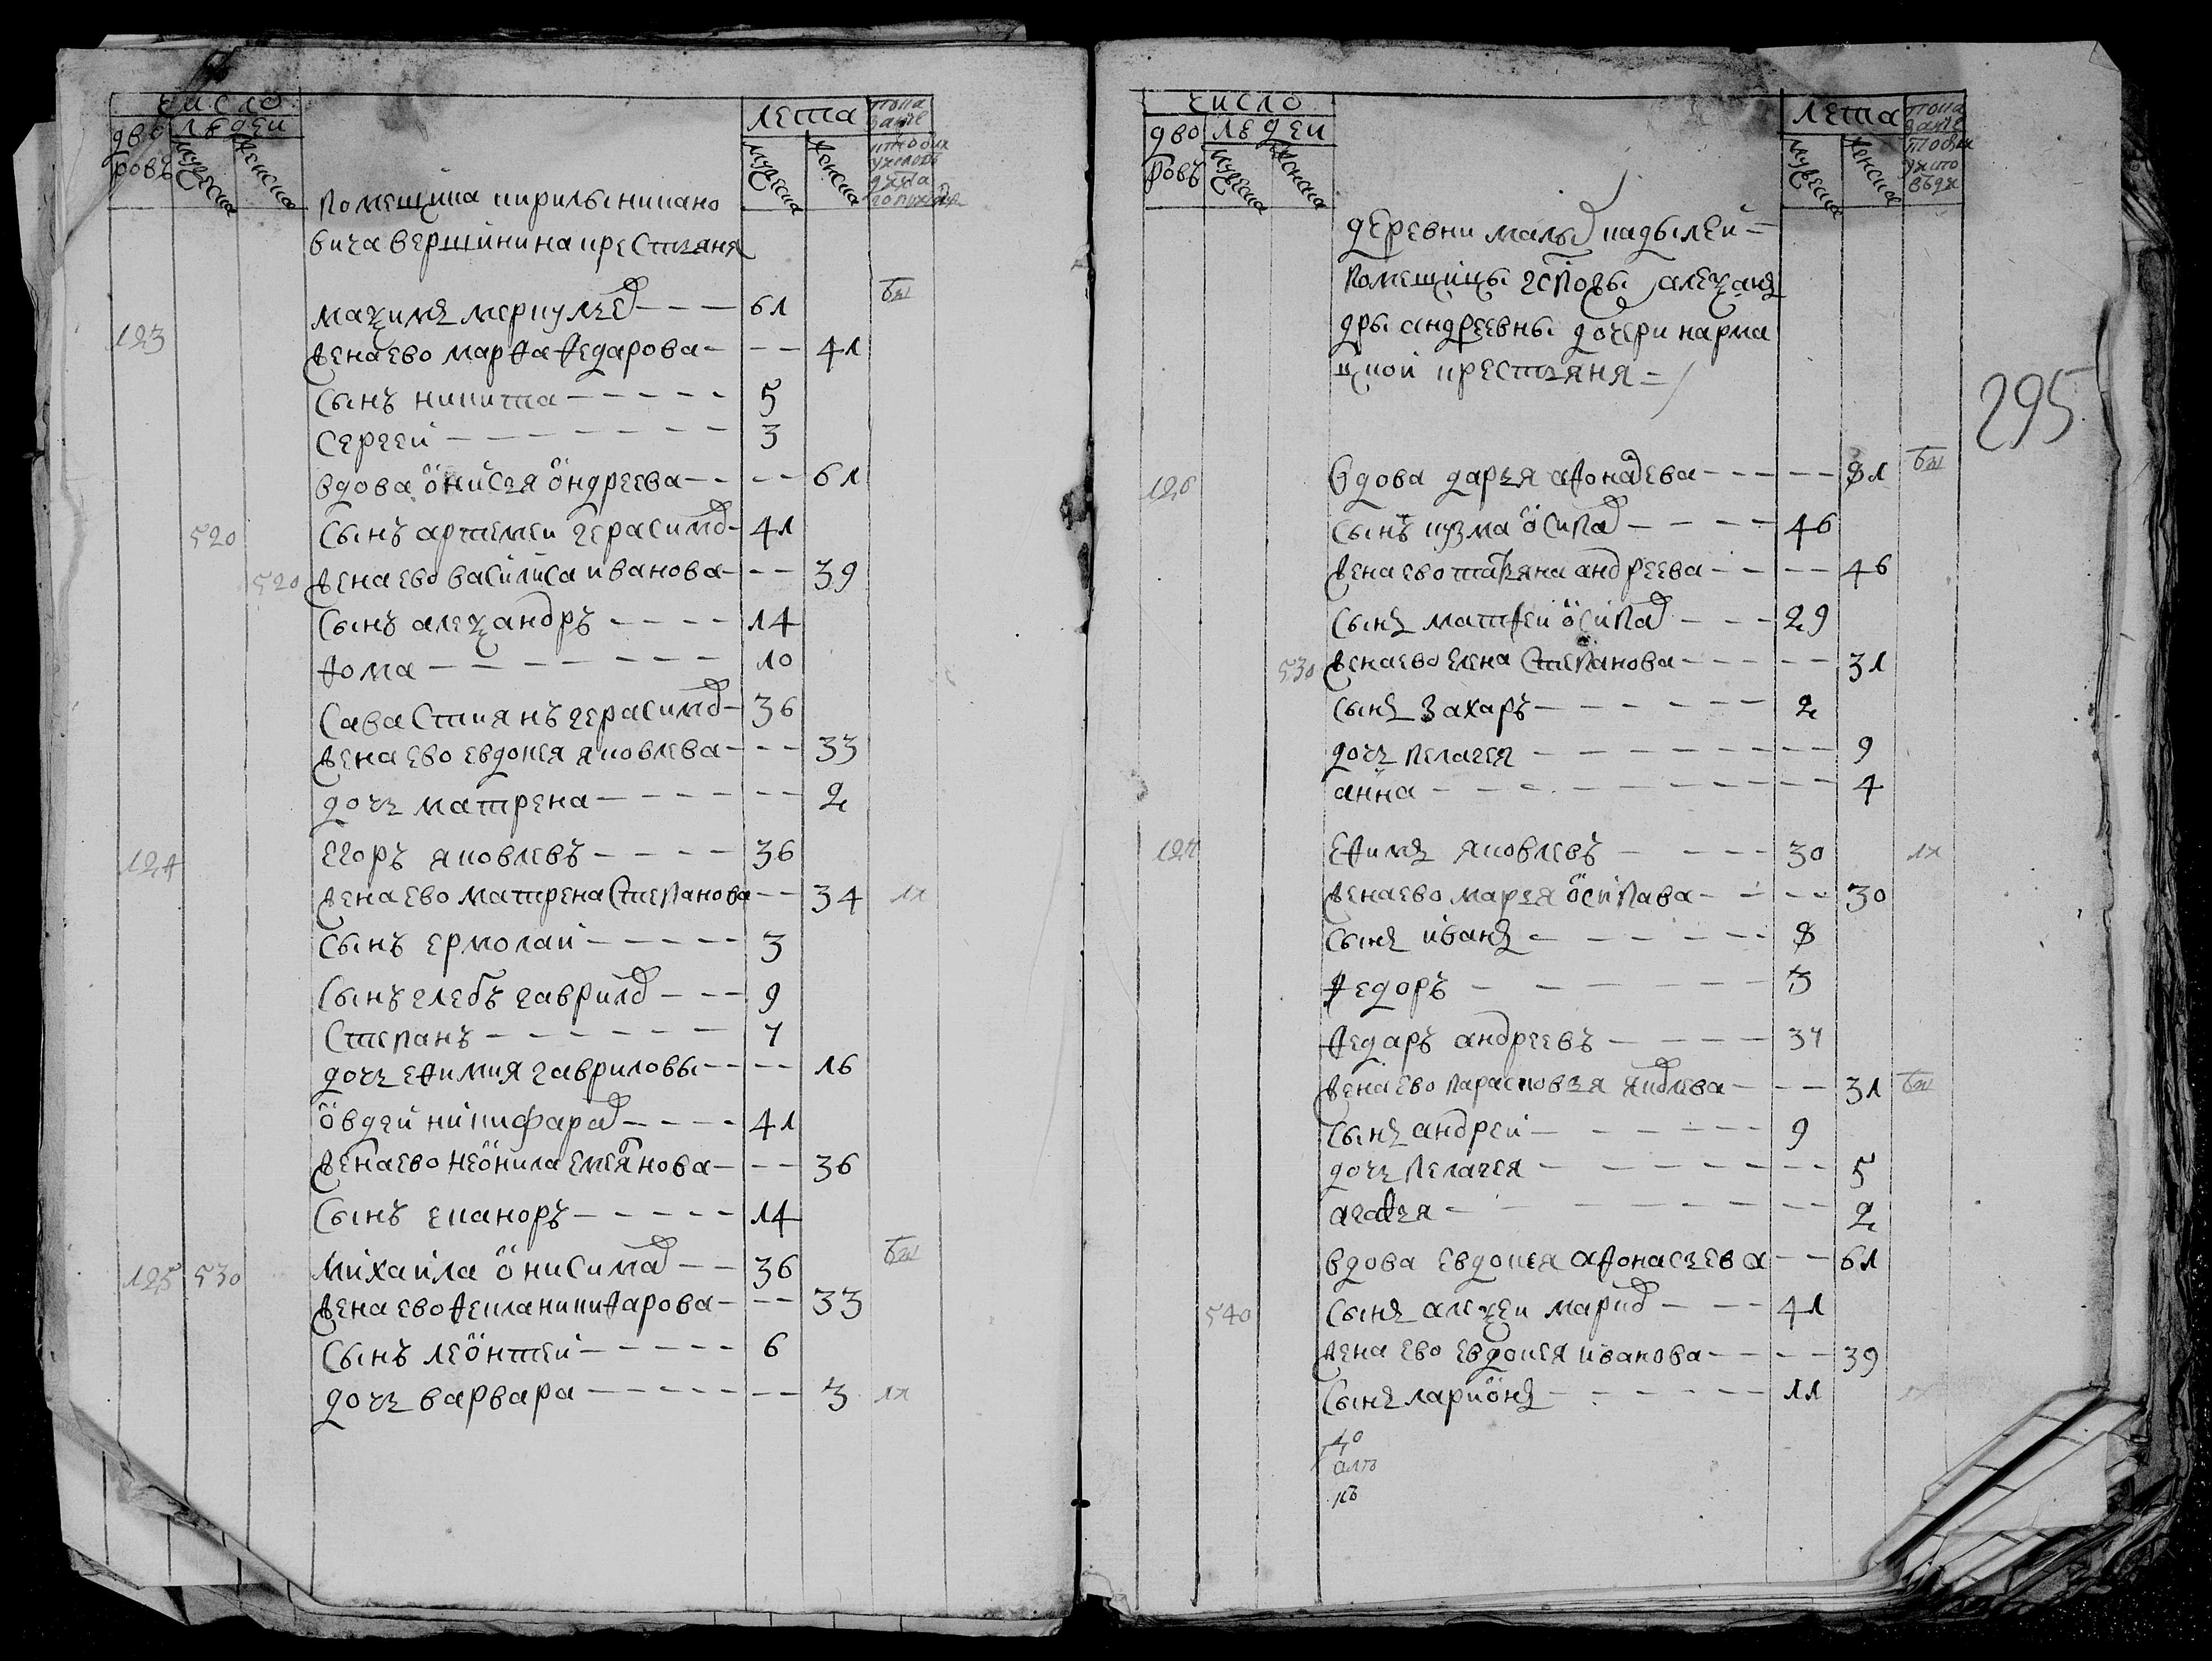 число
дво
ровъ
людеи
мужеска
женска
лета
мужеска
женска
помещика кирилы никано
вича вершинина крестьяня
123
маѯимъ меркулов 61 бы
жена ево марѳа ѳедарова 41
сынъ никита 5
сергеи 3
вдова онисья ондреева 61
520 сынъ артемеи герасимов 41
520 жена ево василиса иванова 39
сынъ алеѯандръ 14
ѳома 10
савастиянъ герасимов 36
жена ево евдокея яковлева 33
дочь матрена 2
124 егоръ яковлевъ 36
жена ево матрена степанова 34
сынъ ермолаи 3
сынъ глебъ гаврилов 9
степанъ 7
дочь еѳимия гавриловы 16
овдеи никифаров 41
жена ево неонила емелянова 36
сынъ еканоръ 14
125 530 михаила онисимов 36 бы
жена ево ѳекла никиѳарова 33
сынъ леонтеи 6
дочь варвара 3
число
дво
ровъ
людеи
мужеска
женска
лета
мужеска
женска
деревни малых кадылеи
помещицы гспожы алеѯан
дры андреевны дочери нарма
цкои крестьяня
295
126 вдова дарья аѳонасева 81 бы
сынъ кузма осипов 46
жена ево татьяна андреева 46
сынъ матѳеи осипов 29
530 жена ево елена степанова 31
сынъ захаръ 2
дочь пелагея 9
анна 4
127 еѳимъ яковлевъ 30
жена ево марья осипава 30
сынъ иванъ 8
ѳедоръ 3
ѳедаръ андреевъ 37
жена ево парасковья яковлева 31 бы
сынъ андреи 9
дочь пелагея 5
агаѳья 2
вдова евдокея аѳонасьева 61
540 сынъ алеѯеи марков 41
жена ево евдокея иванова 39
сынъ ларионъ 11